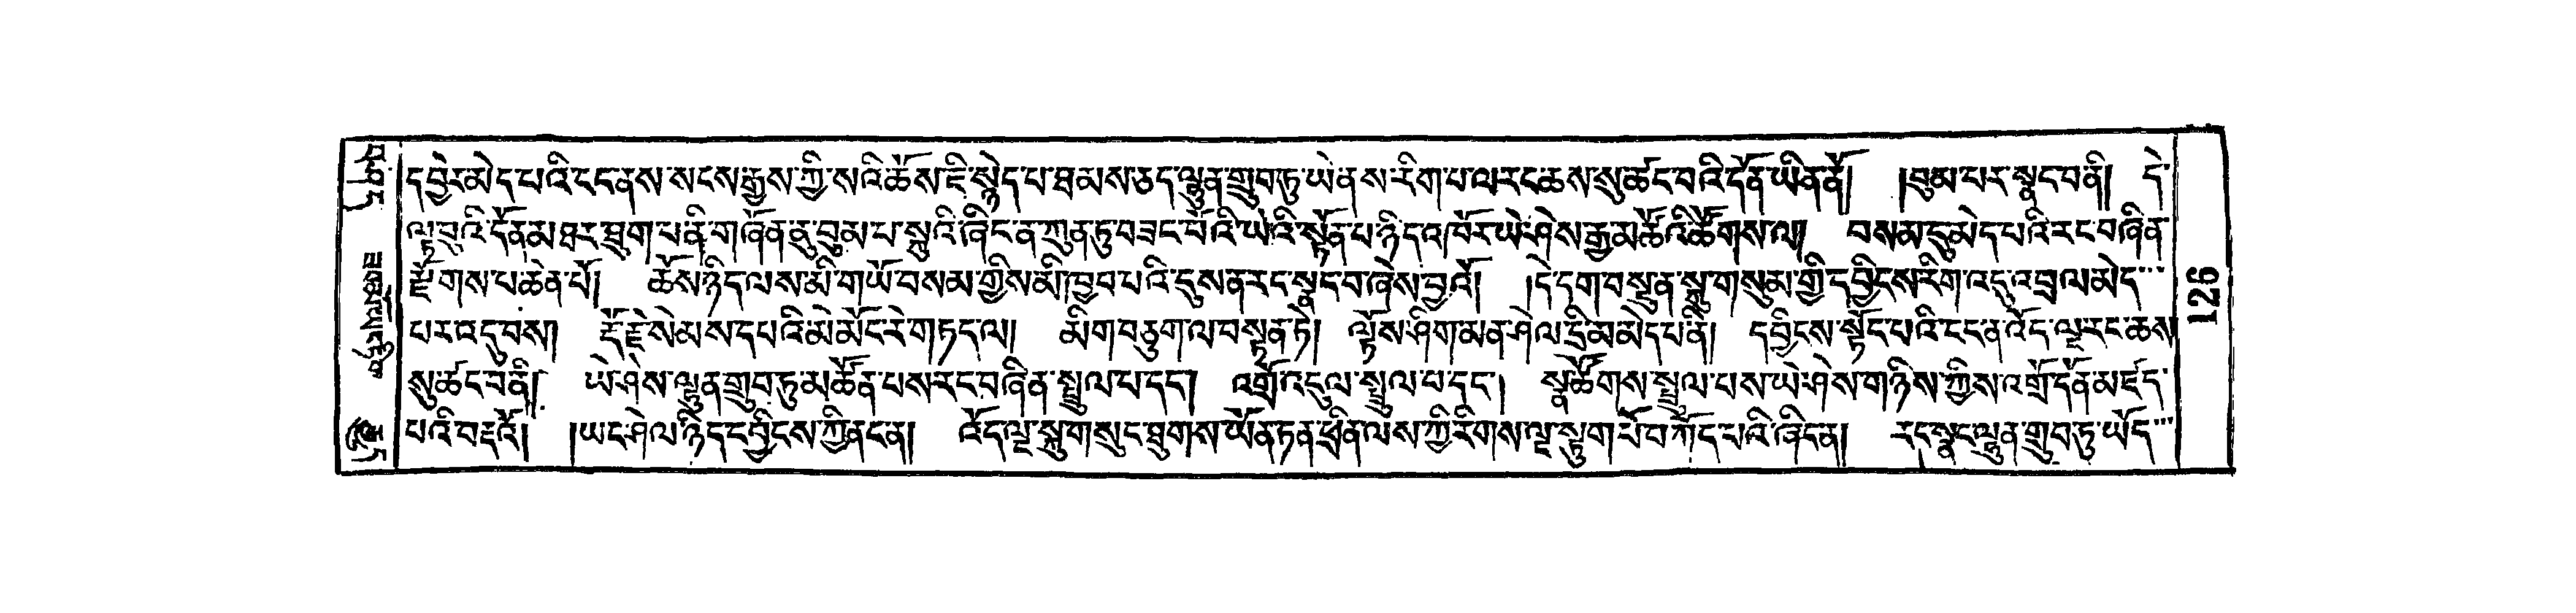 དབྱེར་མེད་པའི་ངང་ནས་སངས་རྒྱས་ཀྱི་སའི་ཆོས་ཇི་སྙེད་པ་ཐམས་ཅད་ལྷུན་གྲུབ་ཏུ་ཡེ་ནས་རིག་པ་ལ་རང་ཆས་སུ་ཚང་བའི་དོན་ཡིན་ནོ། །བུམ་པར་སྣང་བ་ནི། དེ་
ལྟ་བུའི་དོན་མཐར་ཐུག་པ་ནི་གཞོན་ནུ་བུམ་པ་སྐུའི་ཞིང་ན་ཀུན་ཏུ་བཟང་པོའི་ཡེའི་སྟོན་པ་ཉིད་འཁོར་ཡེ་ཤེས་རྒྱ་མཚོའི་ཚོགས་ལ། བསམ་དུ་མེད་པའི་རང་བཞིན་
རྫོགས་པ་ཆེན་པོ། ཆོས་ཉིད་ལས་མི་གཡོ་བསམ་གྱིས་མི་ཁྱབ་པའི་དུས་ན་རང་སྣང་བ་ཞེས་བྱའོ། །དེ་དག་བསྡུན་སྐུ་གསུམ་གྱི་དབྱིངས་རིག་འདུ་འབྲལ་མེད་
པར་འདུ་བས། རྡོ་རྗེ་སེམས་དཔའི་མེ་མོང་རེ་གཏད་ལ། མིག་བཙུག་ལ་བསྟན་ཏེ། ལྟོས་ཤིག་མན་ཤེལ་དྲི་མ་མེད་པ་ནི། དབྱིངས་སྟོང་པའི་ངང་ན་འོད་ལྔ་རང་ཆས་
སུ་ཚང་བ་ནི། ཡེ་ཤེས་ལྷུན་གྲུབ་ཏུ་མཚོན་པས་རང་བཞིན་སྤྲུལ་པ་དང། འགྲོ་འདུལ་སྤྲུལ་པ་དང་། སྣ་ཚོགས་སྤྲུལ་པས་ཡེ་ཤེས་གཉིས་ཀྱིས་འགྲོ་དོན་མཛད་
པའི་བརྡའོ། །ཡང་ཤེལ་ཉིད་དབྱིངས་ཀྱི་ནང་ན། འོད་ལྔ་སྐུ་གསུང་ཐུགས་ཡོན་ཏན་ཕྲིན་ལས་ཀྱི་རིགས་ལྔ་སྟུག་པོ་བཀོད་པའི་ཞིང་ན། རང་སྣང་ལྷུན་གྲུབ་ཏུ་ཡོད་